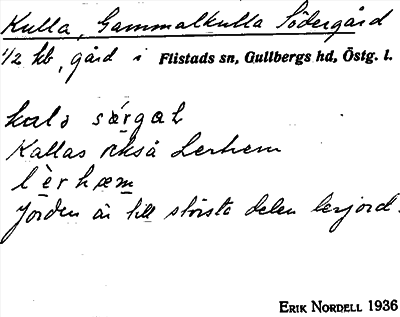 Kulla, Gammalkulla Södergård
1/2 hb, gård i Flistads sn, Gullbergs hd, Östg. l.
sǿrgaḷ
Kallas också Lerhem
lèrhæm
Jorden är till största delen lerjord.
ERIK NORDELL 1936